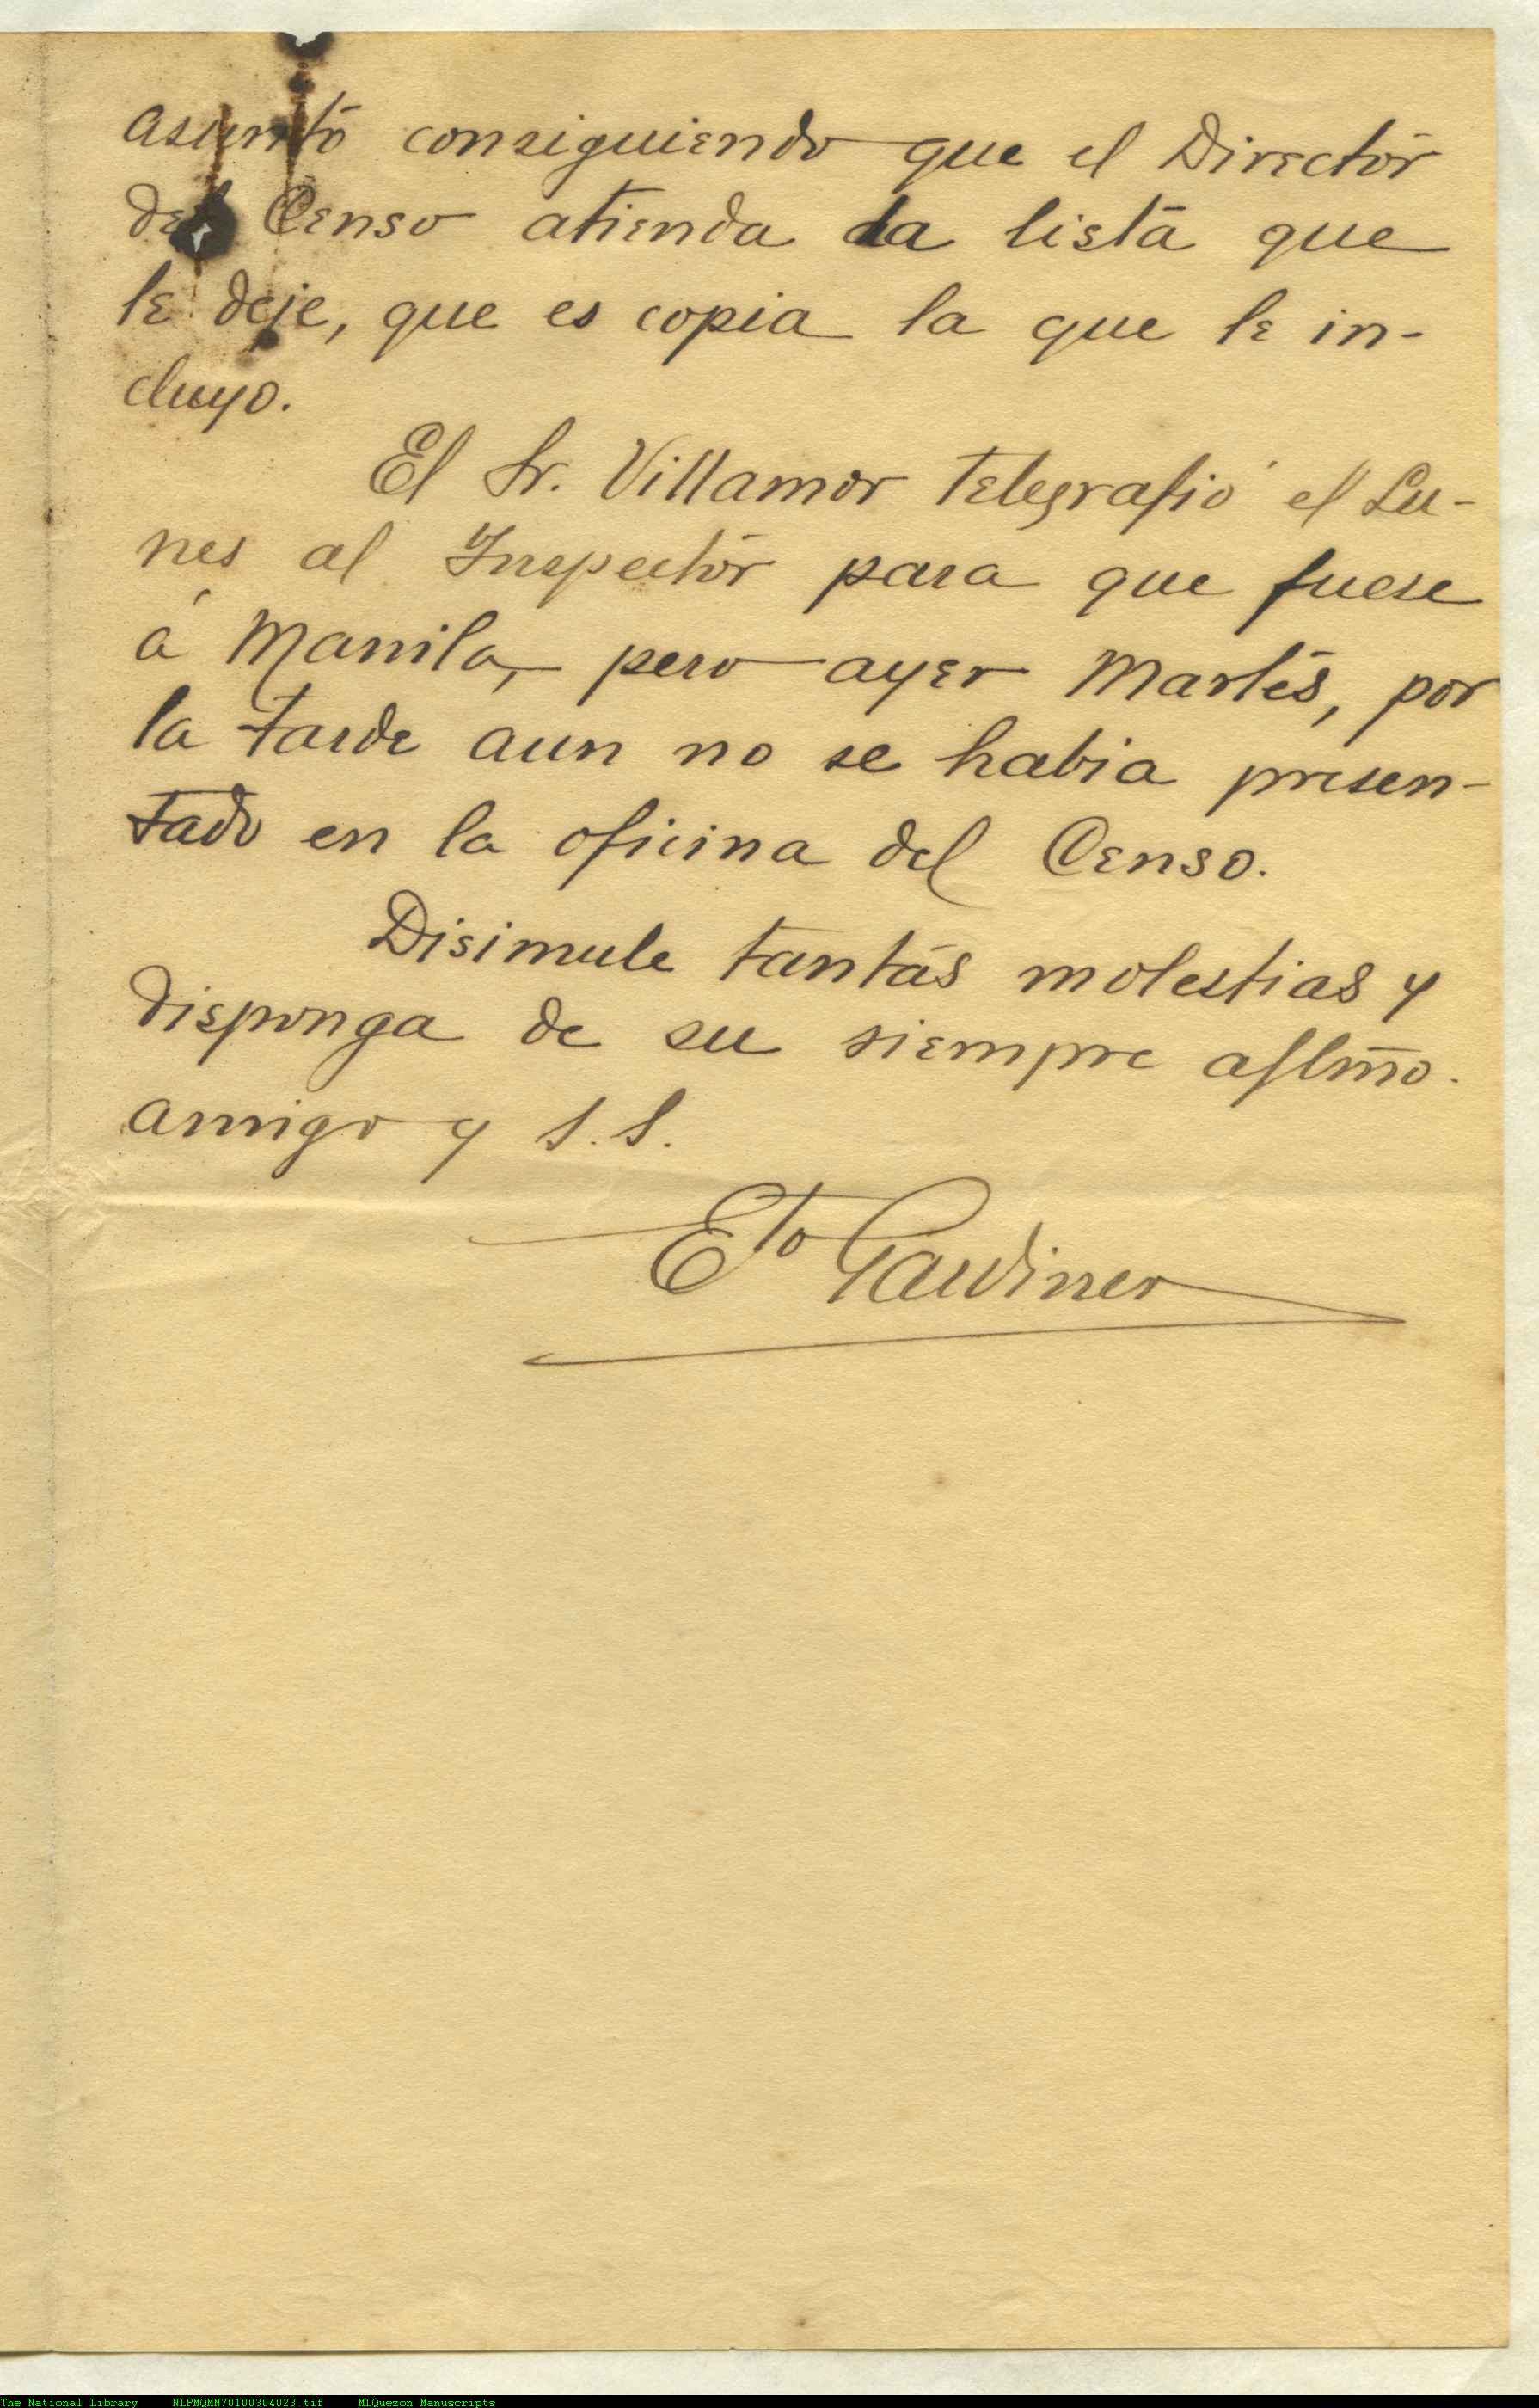 asunto consiguiendo que el Director
del Censo atienda la lista que
le deje, que es copia la que le in-
cluyo.
El Sr. Villamor telegrafió el Lu-
nes al Inspector para que fuese
á Manila, pero ayer Martes, por
la tarde aun no se habia presen-
tado en la oficina del Censo.
Disimule tantas molestias y
disponga de su siempre aftmo.
amigo y s. s.
Eto Gardiner
The National Library NLPMQMN70100304023.tif MLQuezon Manuscripts